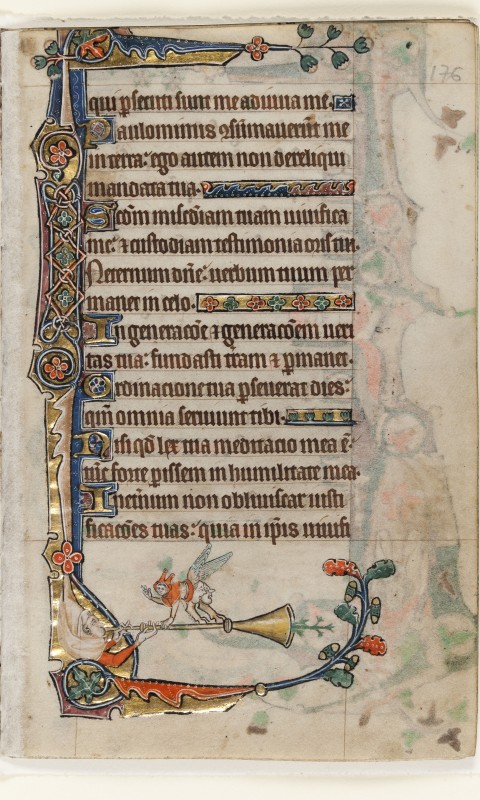 176
qui psecuti sunt me adiuua me.
Paulominus ɔsũmauerũt me
in terra: ego autem non dereliqui
mandata tua.
Scđm misc̃diam tuam uiuifica
me: ⁊ custodiam testimonia oris tui.
In eternum dñe: uerbum tuum per
manet in celo.
In generacõe ⁊ generacõem ueri
tas tua: fundasti tr̃am ⁊ pmanet.
Ordinacione tua pseuerat dies:
qm̃ omnia seruiunt tibi.
Nisi qđ lex tua meditacio mea ẽ:
tũc forte pissem in humilitate mea.
In etñum non obliuiscar iusti
ficacões tuas: quia in ip̃is uiuifi